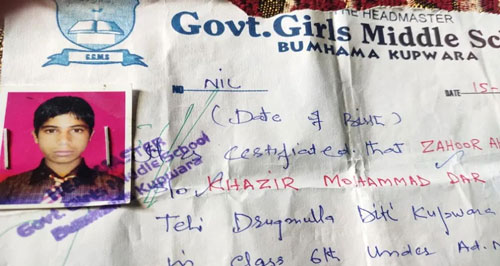 THE HEADMASTER
Govt. Girls Middle Sc
BUMHAMA KUPWARA
G.G.M.S
NO. NIL
DATE 15-
(Date of Birth)
certificated that ZAHOOR AH
To, KHAZIR MOHAMMAD DAR
Teli Drugmulla Ditt Kupwara
in class 6th under Ad. N
Govt. Middle School
Kupwara